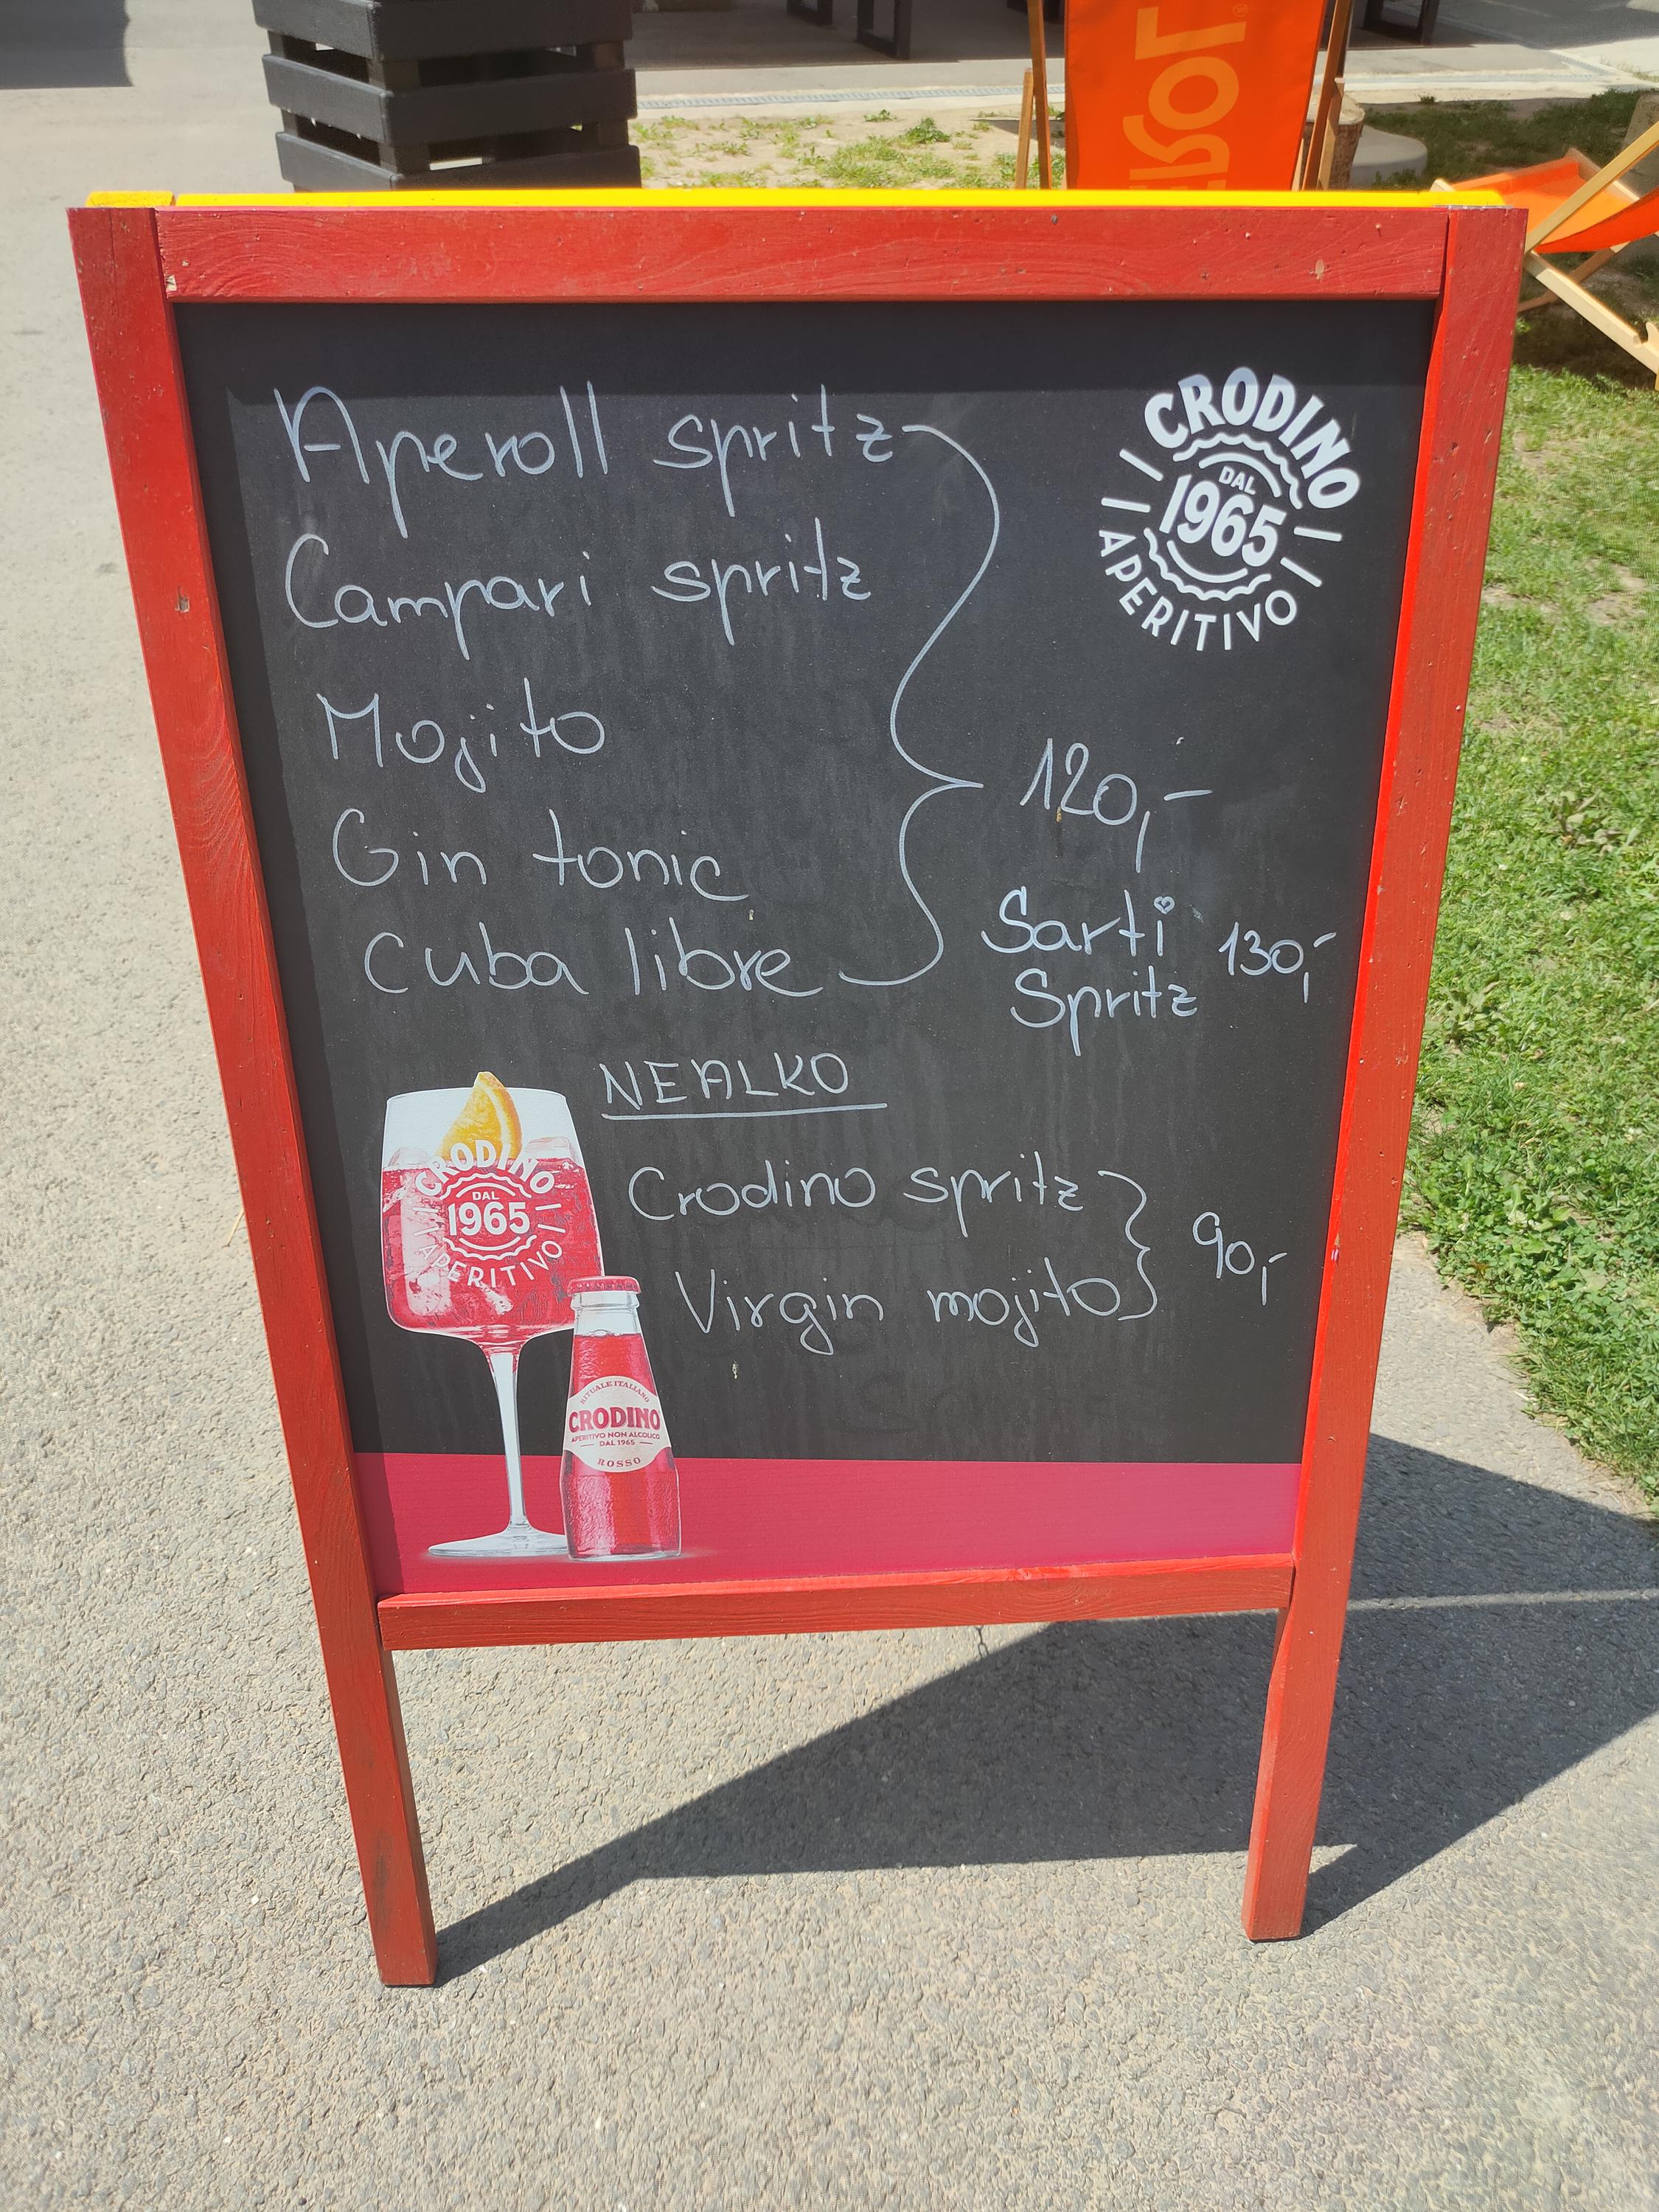 Aperoll spritz
Campari spritz
Mojito
Gin tonic
Cuba libre
120,-
Sarti
Spritz
130,-
NEALKO
Crodino spritz
Virgin mojito
90,-
CRODINO
DAL
1965
APERITIVO
CRODINO
DAL
1965
APERITIVO
RITUALE ITALIANO
CRODINO
APERITIVO NON ALCOLICO
DAL 1965
ROSSO